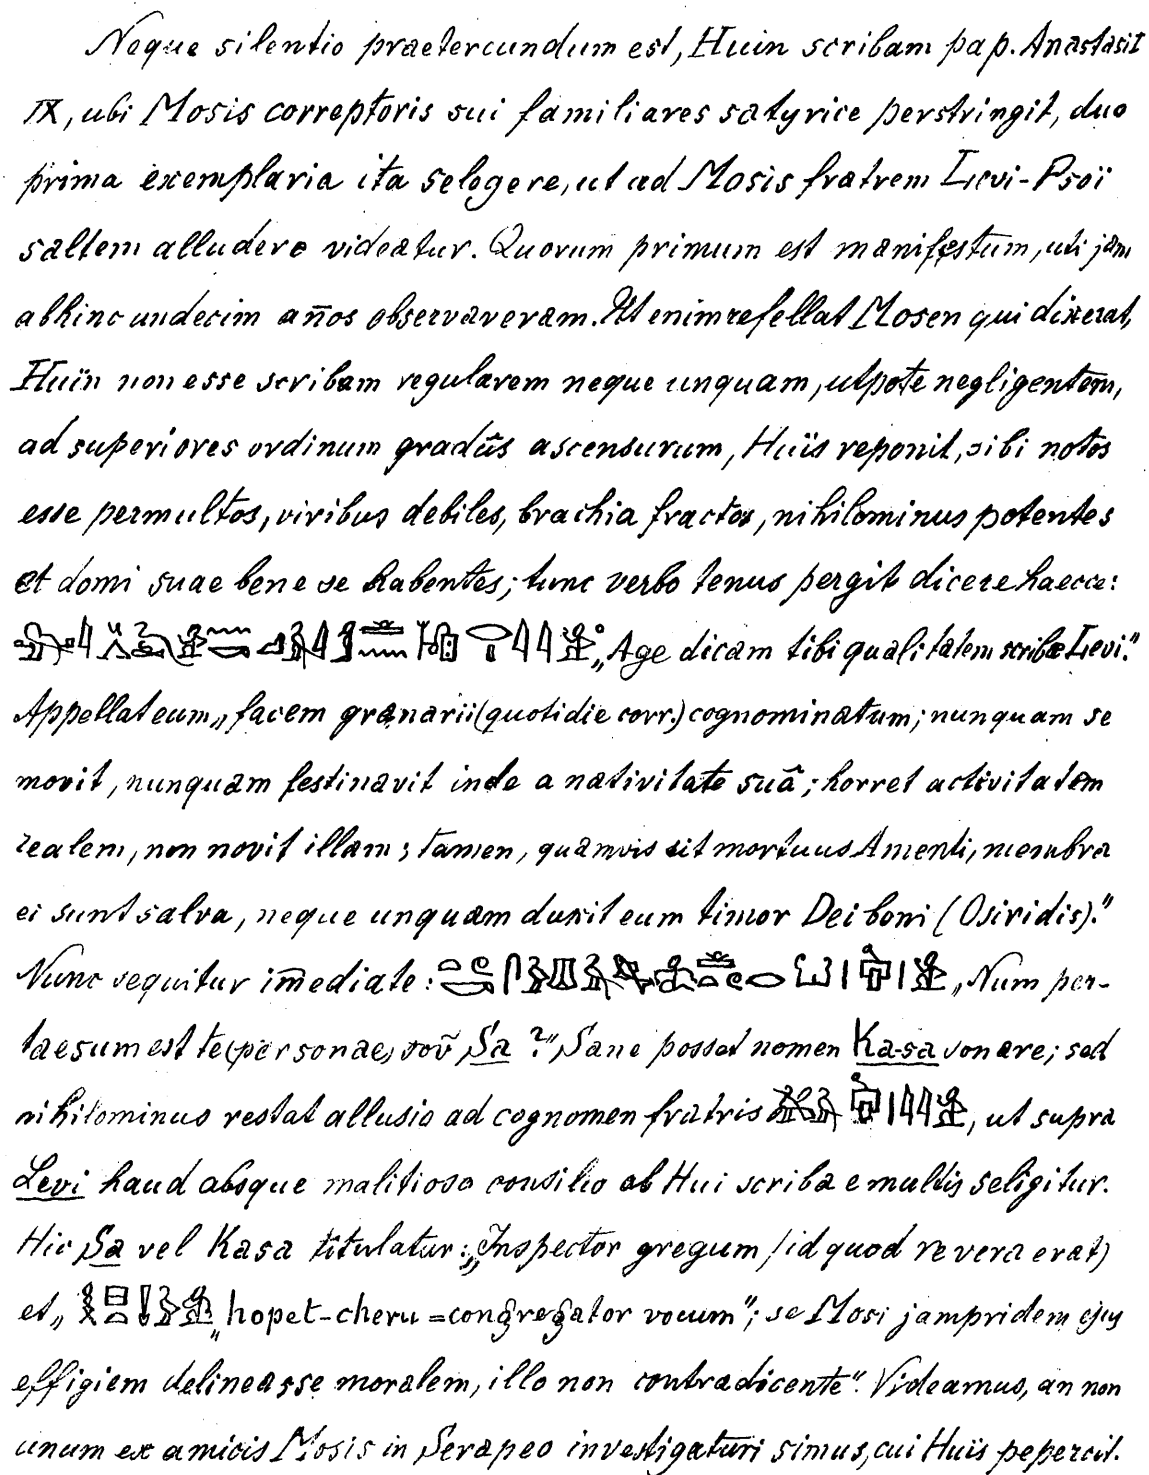 Neque silentio praetereundum est, Huin scribam pap. Anastasii
IX, ubi Mosis correptoris sui familiares satyrice perstringit, duo
prima exemplaria ita selegere, ut ad Mosis fratrem Levi-Psoï
saltem alludere videatur. Quorum primum est manifestum, uti jam
abhinc undecim an̄os observaveram. Ut enim refellat Mosen qui dixerat,
Huïn non esse scribam regularem neque unquam, utpote negligentem,
ad superiores ordinum gradûs ascensurum, Huïs reponit, sibi notos
esse permultos, viribus debiles, brachia fractos, nihilominus potentes
et domi suae bene se habentes; tunc verbo tenus pergit dicere haecce:
„Age dicam tibi qualitatem scribæ Levi."
Appellat eum „facem granarii (quotidie corr.) cognominatum; nunquam se
movit, nunquam festinavit inde a nativitate suâ; horret activitatem
realem, non novit illam; tamen, quamvis sit mortuus Amenti, membra
ei sunt salva, neque unquam duxit eum timor Dei boni (Osiridis)."
Nunc sequitur im̄ediate: „Num per-
taesum est te (personae) τοῦ Sa?" Sane posset nomen Ka-sa sonare; sed
nihilominus restat allusio ad cognomen fratris , ut supra
Levi haud absque malitioso consilio ab Hui scriba e multis seligitur.
Hic Sa vel Kasa titulatur: „Inspector gregum (id quod re vera erat)
et „ „hopet-cheru = congregator vocum"; se Mosi jampridem ejus
effigiem delineasse moralem, illo non contradicente". Videamus, an non
unum ex amicis Mosis in Serapeo investigaturi simus, cui Huïs pepercit.